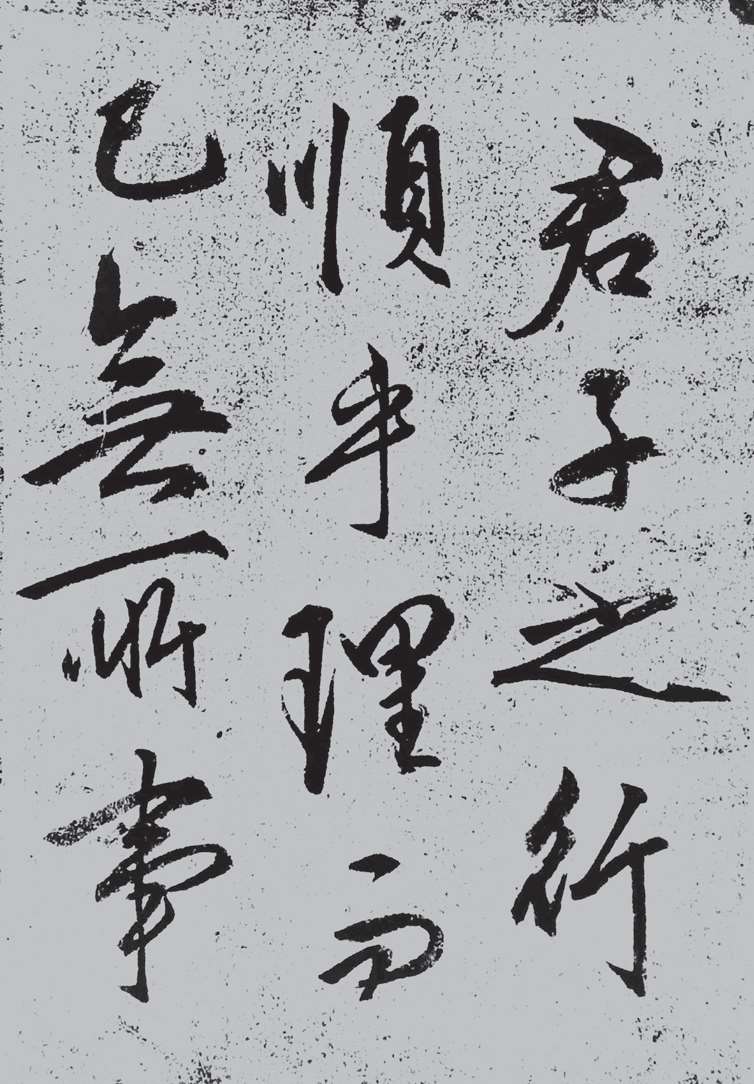 君子之行
順乎理而
已無所事